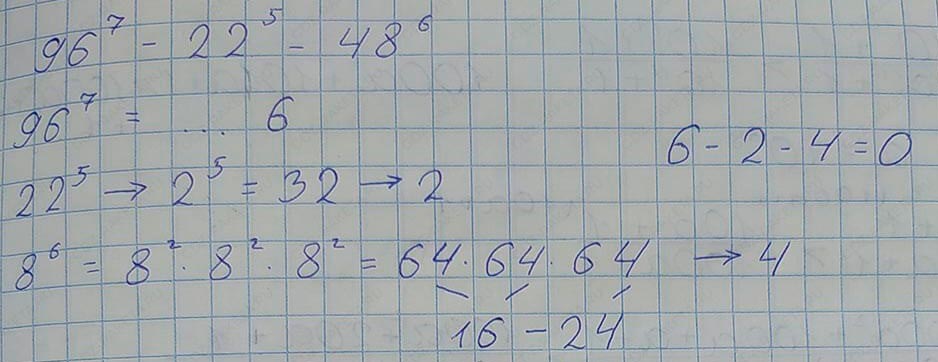 96⁷ - 22⁵ - 48⁶
96⁷ = ... 6
6 - 2 - 4 = 0
22⁵ → 2⁵ = 32 → 2
8⁶ = 8² · 8² · 8² = 64 · 64 · 64 → 4
16 - 24